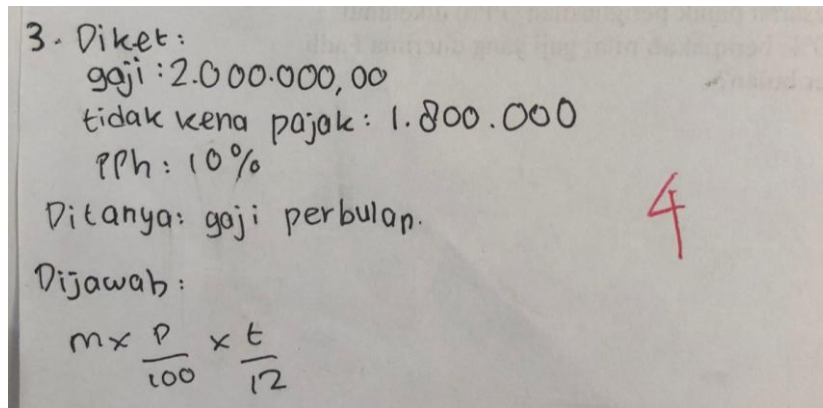 3. Diket:
gaji : 2.000.000,00
tidak kena pajak : 1.800.000
PPh : 10%
Ditanya: gaji perbulan.
4
Dijawab:
m x p/100 x t/12